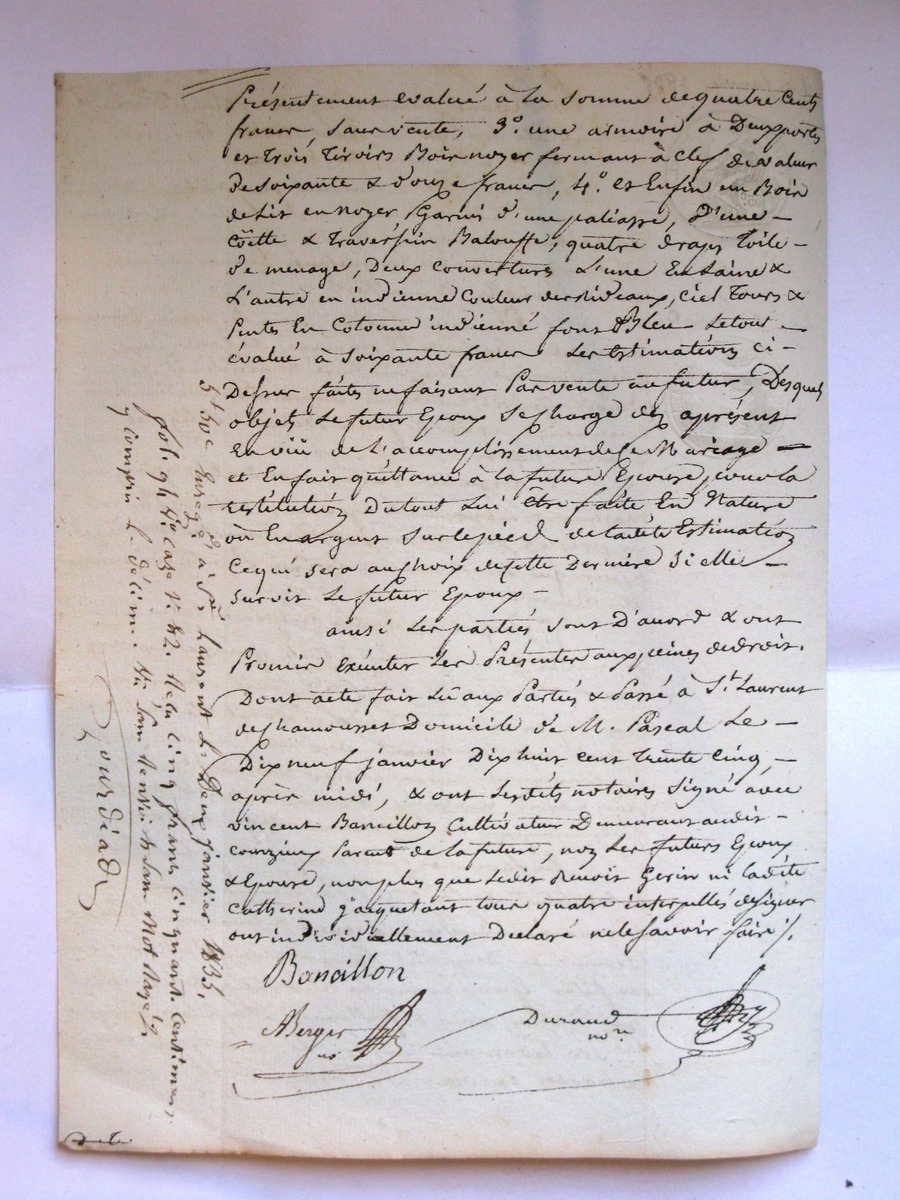 Présentement evalué à la somme de quatre cents
francs sans vente, 3.º une armoire à Deux portes
et trois tiroirs Bois noyer fermant à clef de valeur
de soixante & douze francs, 4.º et Enfin un Bois
de lit en noyer Garni d'une paliasse, D'une
Coëtte & Traversin Balouffe, quatre draps toile
de menage, Deux couvertures L'une En laine &
L'autre en indienne Couleur des Rideaux, Ciel Tours &
Pentes En Cotonne indienne font Bleu Le tout
évalué à soixante francs Les Estimations ci-
Dessus faites ne faisant Pas vente au futur, Desquels
objets Le futur Epoux Se charge dès aprésent
En vüe de l'accomplissement de Ce Mariage
et En fait quittance à la future Epouse, pour la
restitution Du tout Lui être faite En Nature
ou En argent Sur le pied de ladite Estimation
Ce qui sera au choix de cette Dernière Si elle
survit Le futur Epoux -
ainsi Les parties sont D'acord & ont
Promis Exécuter Les Présentes aux peines de droit.
Dont acte fait Lû aux Parties & Passé à St. Laurent
de Chamousset Domicile de M. Pascal Le
Dix neuf janvier Dix huit cent Trente Cinq,
après midi, & ont Lesdits notaires Signé avec
vincent Bancillon Cultivateur Demeurant audit
Courzieux Parent de la future, non Les futurs Epoux
& Epouse, non plus que Ledit Benoit Gerin ni ladite
Catherine jacquetant tous quatre interpellés de signer
ont individuellement Declaré ne le savoir faire ./.
Bancillon
Berger
no
Durand
nore
Enregé à St Laurent le Deux janvier 1835,
fol. 94 Vo case reçu cinq francs cinquante centimes,
y compris le décime.